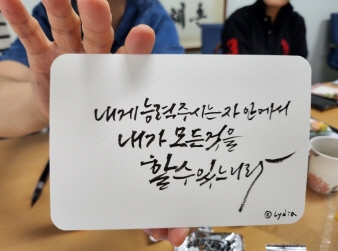 내게 능력주시는 자 안에서
내가 모든것을
할 수 있느니라
©Lydia